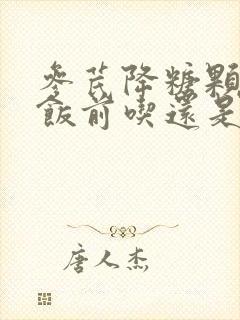 参芪降糖顆
飯前喫還是
唐人杰